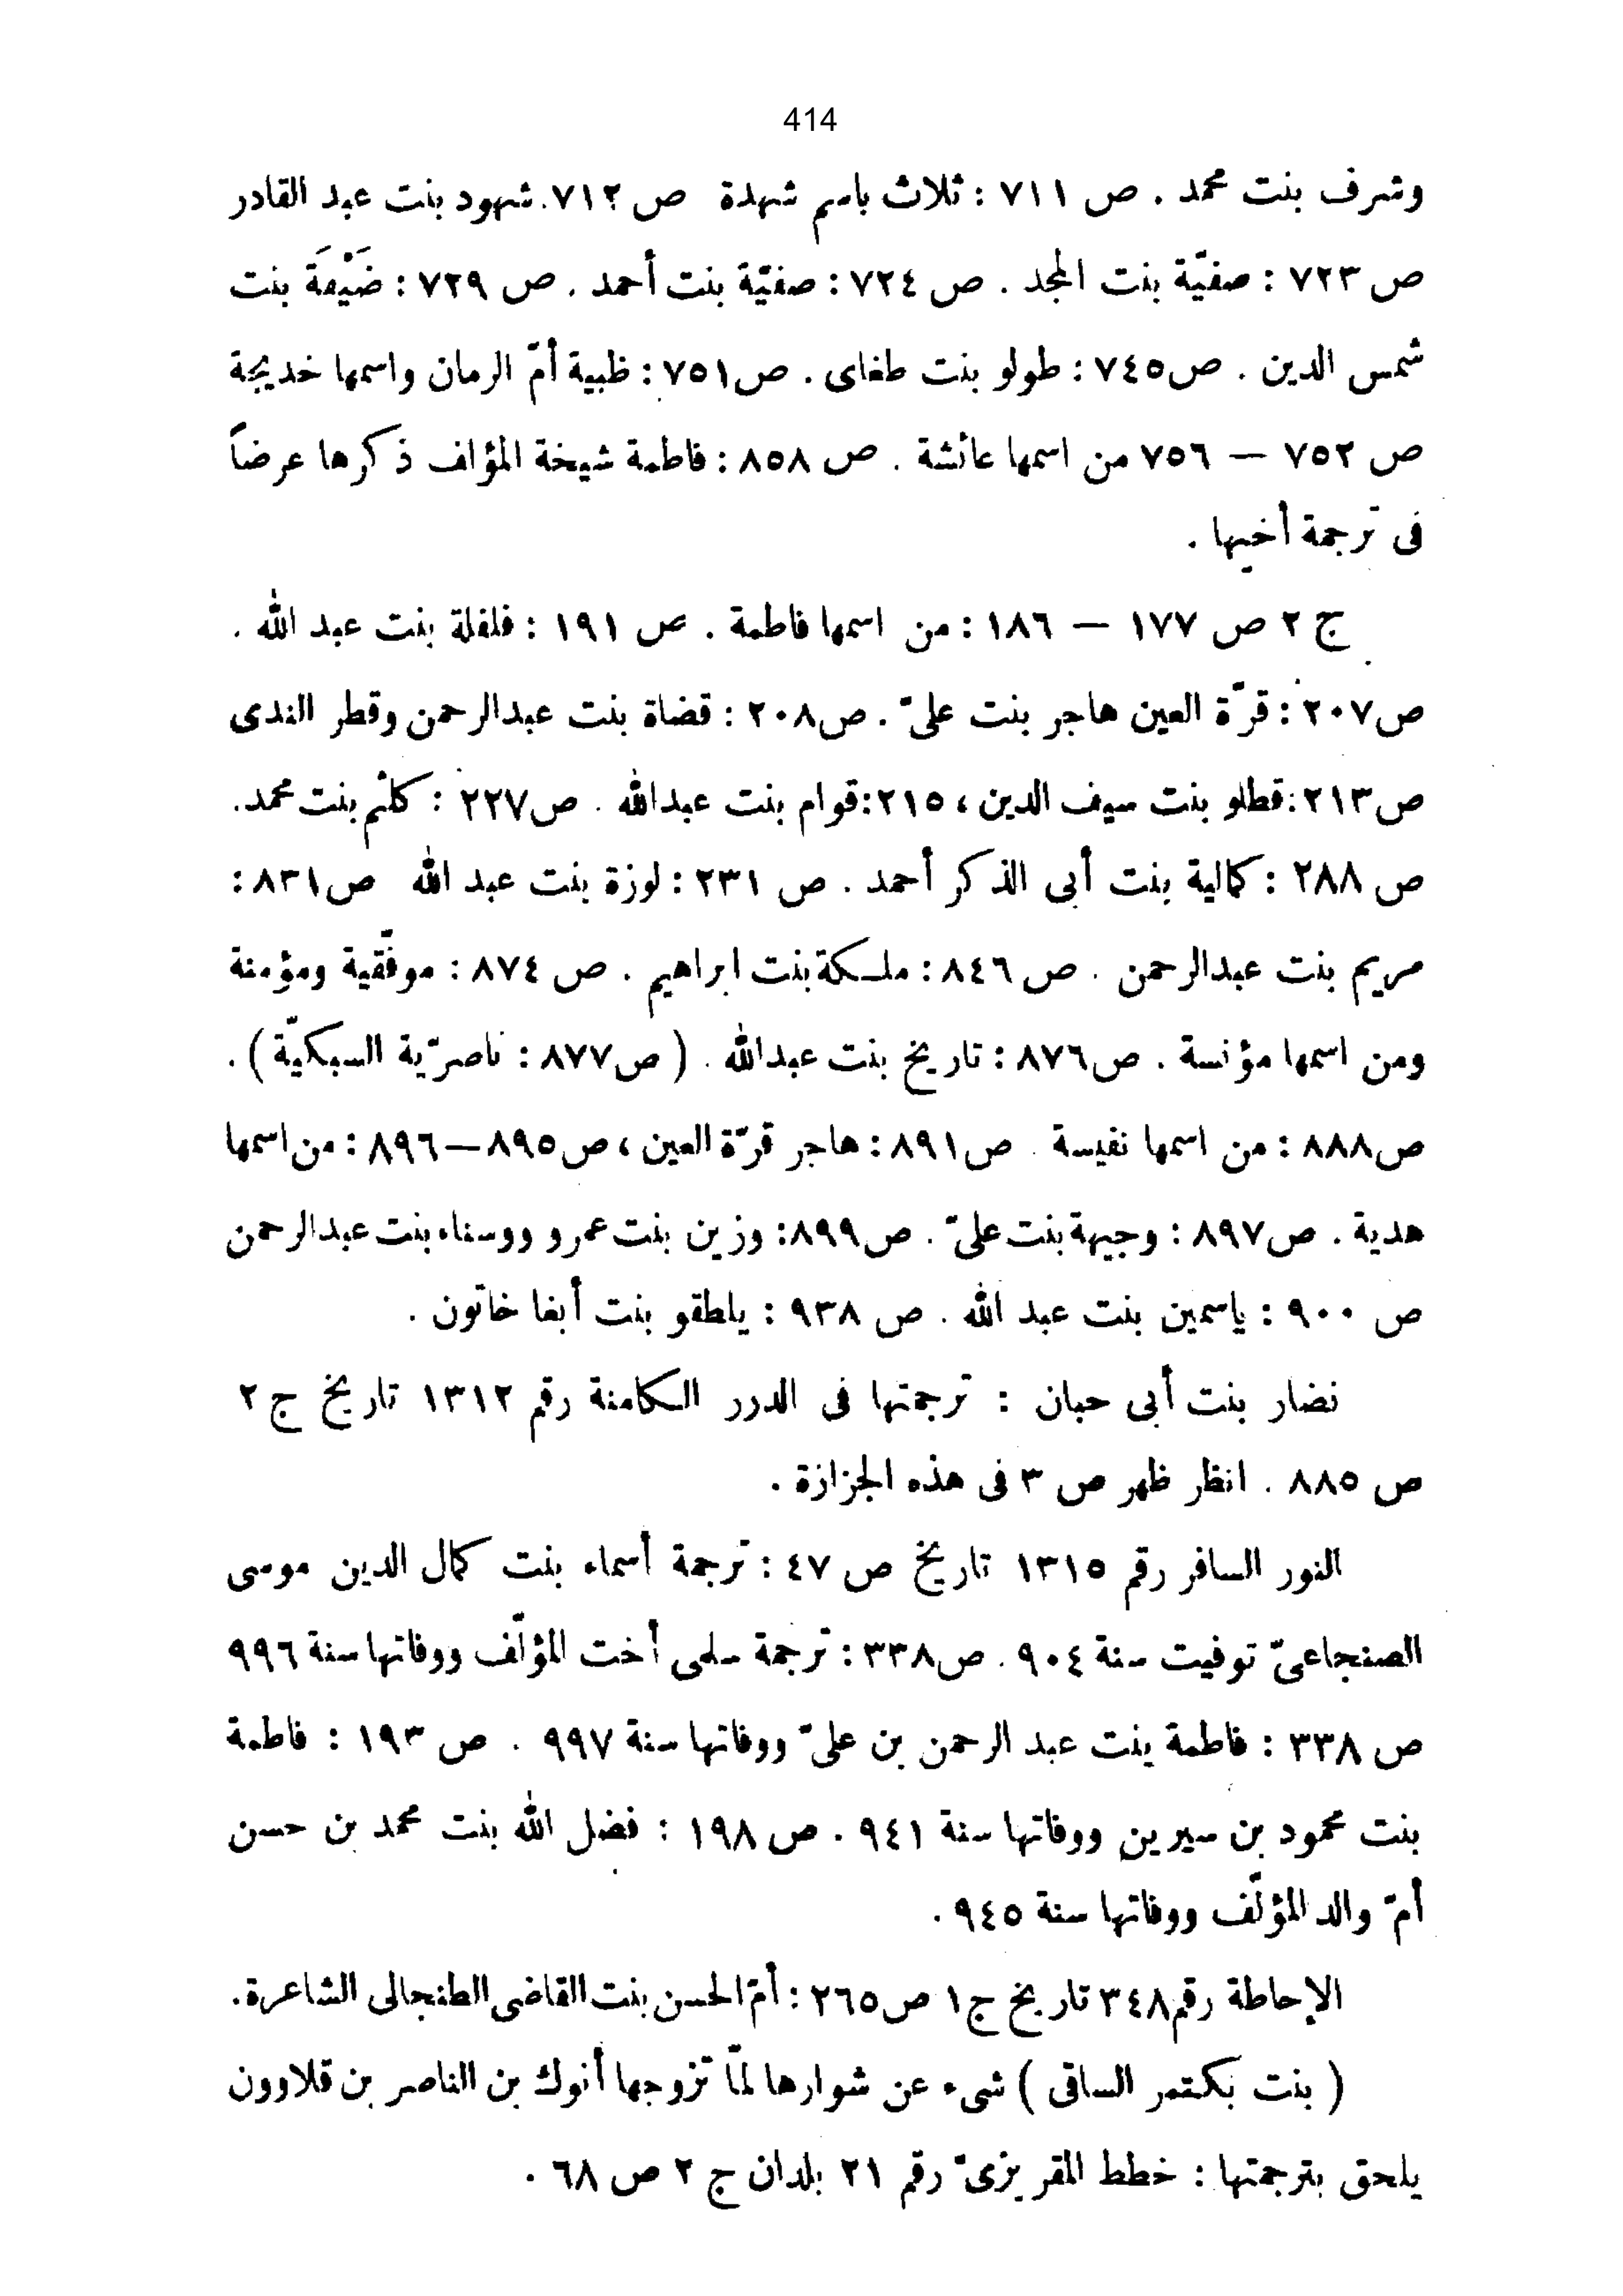 414
وشرف بنت محمد . ص ٧١١ : ثلاث باسم شهدة ص ٧١٢. شهود بنت عبد القادر
ص ٧٢٣ : صفيّة بنت المجد . ص ٧٢٤ : صفيّة بنت أحمد . ص ٧٢٩ : ضَيْفَة بنت
شمس الدين . ص٧٤٥ : طولو بنت طغاى . ص٧٥١ : ظبية أمّ الرمان واسمها خديجة
ص ٧٥٢ — ٧٥٦ من اسمها عائشة . ص ٨٥٨ : فاطمة شيخة المؤلف ذكرها عرضاً
فى ترجمة أخيها .
ج ٢ ص ١٧٧ — ١٨٦ : من اسمها فاطمة . ص ١٩١ : فلفلة بنت عبد الله .
ص٢٠٧ : قرّة العين هاجر بنت علىّ . ص٢٠٨ : قضاة بنت عبدالرحمن وقطر الندى
ص٢١٣ : قطلو بنت سيف الدين ، ٢١٥ : قوام بنت عبدالله . ص٢٢٧ : كلثم بنت محمد.
ص ٢٨٨ : كمالية بنت أبى الذكر أحمد . ص ٢٣١ : لوزة بنت عبد الله ص٨٣١ :
مريم بنت عبدالرحمن . ص ٨٤٦ : ملـكة بنت ابراهيم . ص ٨٧٤ : موفّقية ومؤمنة
ومن اسمها مؤنسة . ص٨٧٦ : تاريخ بنت عبدالله . ( ص٨٧٧ : ناصرّية السبكيّة ) .
ص٨٨٨ : من اسمها نفيسة . ص٨٩١ : هاجر قرّة العين ، ص٨٩٥—٨٩٦ : من اسمها
هدية . ص٨٩٧ : وجيهة بنت علىّ . ص٨٩٩: وزين بنت عمرو ووسناء بنت عبدالرحمن
ص ٩٠٠ : ياسمين بنت عبد الله . ص ٩٣٨ : يلطقو بنت أبغا خاتون .
نضار بنت أبى حبان : ترجمتها فى الدرر الـكامنة رقم ١٣١٢ تاريخ ج ٢
ص ٨٨٥ . انظر ظهر ص ٣ فى هذه الجزازة .
النور السافر رقم ١٣١٥ تاريخ ص ٤٧ : ترجمة أسماء بنت كمال الدين موسى
الصنجاعىّ توفيت سنة ٩٠٤ . ص٣٣٨ : ترجمة سلمى أخت المؤلّف ووفاتها سنة ٩٩٦
ص ٣٣٨ : فاطمة بنت عبد الرحمن بن علىّ ووفاتها سنة ٩٩٧ . ص ١٩٣ : فاطمة
بنت محمود بن سيرين ووفاتها سنة ٩٤١ . ص ١٩٨ : فضل الله بنت محمد بن حسن
أمّ والد المؤلّف ووفاتها سنة ٩٤٥ .
الإحاطة رقم ٣٤٨ تاريخ ج١ ص٢٦٥ : أمّ الحسن بنت القاضى الطنجالى الشاعرة.
( بنت بكتمر الساقى ) شىء عن شوارها لمّا تزوجها أنوك بن الناصر بن قلاوون
يلحق بترجمتها : خطط المقريزىّ رقم ٢١ بلدان ج ٢ ص ٦٨ .